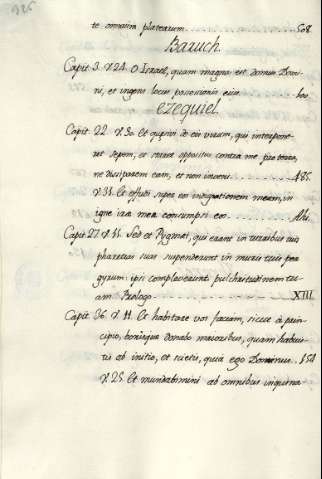 te omnium platearum 508
Baruch
Capit 3. V. 24. O Israel, quam magna est domus Domi-
ni, et ingens locus possessionis eius 600
Ezequiel
Capit 22. V. 30. Et quesivi de eis virum, qui interponeret
sepem, et staret oppositus contra me pro terra,
ne dissiparem eam, et non inveni 485
V. 31. Et effudi super eos indignationem meam, in
igne irae meae consumpsi eos Ibi.
Capit 27. V. 11. Sed et Pygmaei, qui erant in turribus tuis
pharetras suas suspenderunt in muris tuis per
gyrum: ipsi compleverunt pulchritudinem tu-
am Prologo XIII
Capit 36. V. 11. Et habitare vos faciam, sicut a prin-
cipio, bonisque donabo maioribus, quam habuis-
tis ab initio, et scietis, quia ego Dominus 154
V. 25. Et mundabimini ab omnibus inquina-